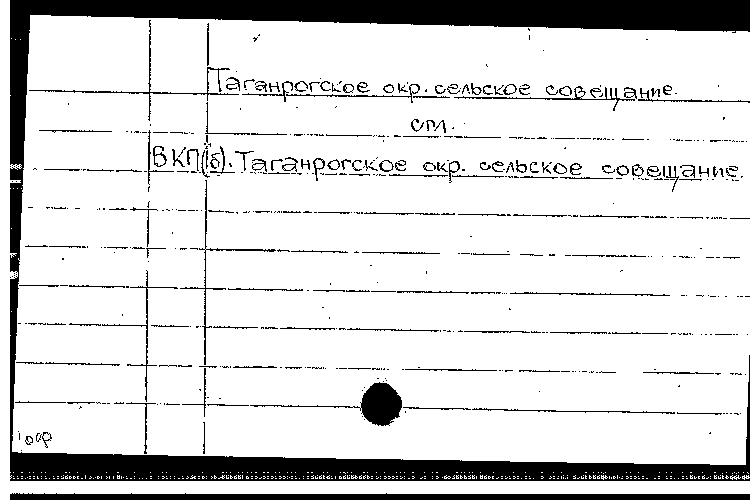 Таганрогское окр. сельское совещание.
см.
ВКП(б). Таганрогское окр. сельское совещание.